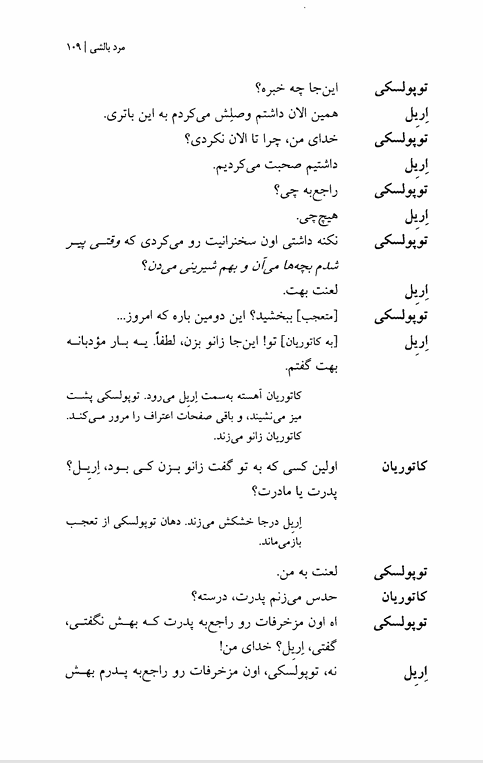 مرد بالشی | ۱۰۹
توپولسکی این‌جا چه خبره؟
اِریِل همین الان داشتم وصلِش می‌کردم به این باتری.
توپولسکی خدای من، چرا تا الان نکردی؟
اِریِل داشتیم صحبت می‌کردیم.
توپولسکی راجع‌به چی؟
اِریِل هیچ‌چی.
توپولسکی نکنه داشتی اون سخنرانیت رو می‌کردی که وقتـی پیـر
شدم بچه‌ها می‌آن و بهم شیرینی می‌دن؟
اِریِل لعنت بهت.
توپولسکی [متعجب] ببخشید؟ این دومین باره که امروز...
اِریِل [به کاتوریان] تو! این‌جا زانو بزن، لطفاً. یـه بـار مؤدبانـه
بهت گفتم.
کاتوریان آهسته به‌سمت اِریِل می‌رود. توپولسکی پشت
میز می‌نشیند، و باقی صفحات اعتراف را مرور مـی‌کنـد.
کاتوریان زانو می‌زند.
کاتوریان اولین کسی که به تو گفت زانو بـزن کـی بـود، اِریِـل؟
پدرت یا مادرت؟
اِریِل درجا خشکش می‌زند. دهان توپولسکی از تعجـب
بازمی‌ماند.
توپولسکی لعنت به من.
کاتوریان حدس می‌زنم پدرت، درسته؟
توپولسکی اه اون مزخرفات رو راجع‌به پدرت کـه بهـش نگفتـی،
گفتی، اِریِل؟ خدای من!
اِریِل نه، توپولسکی، اون مزخرفات رو راجع‌به پـدرم بهـش